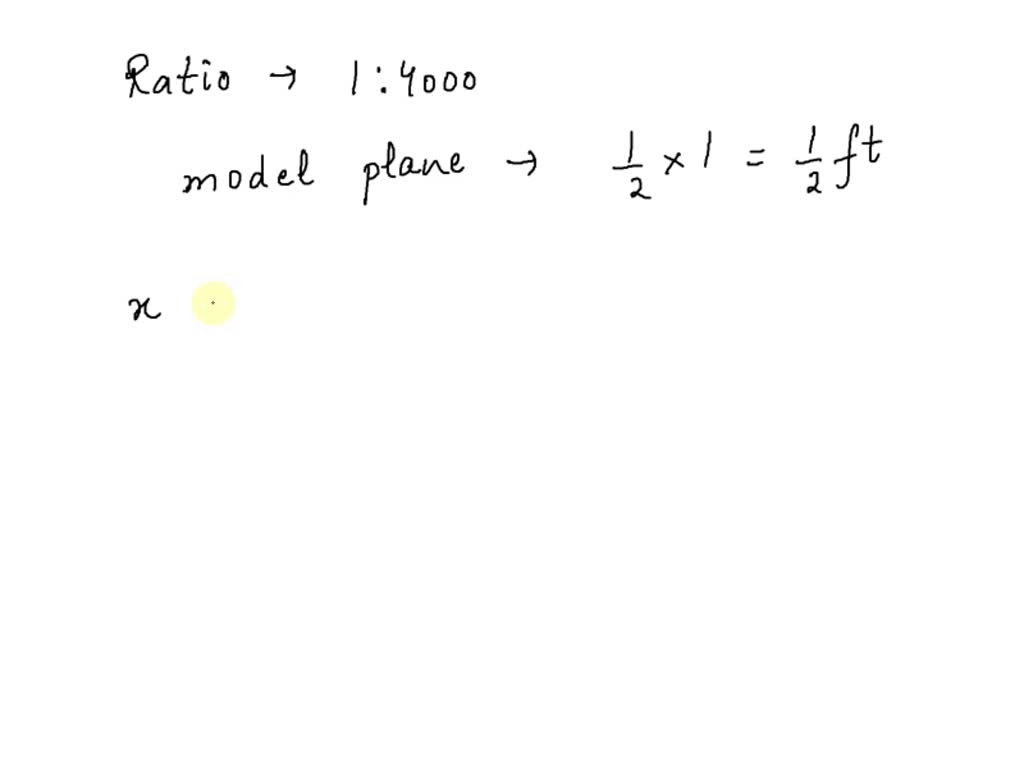 Ratio → 1:4000
model plane → 1/2 × 1 = 1/2 ft
x